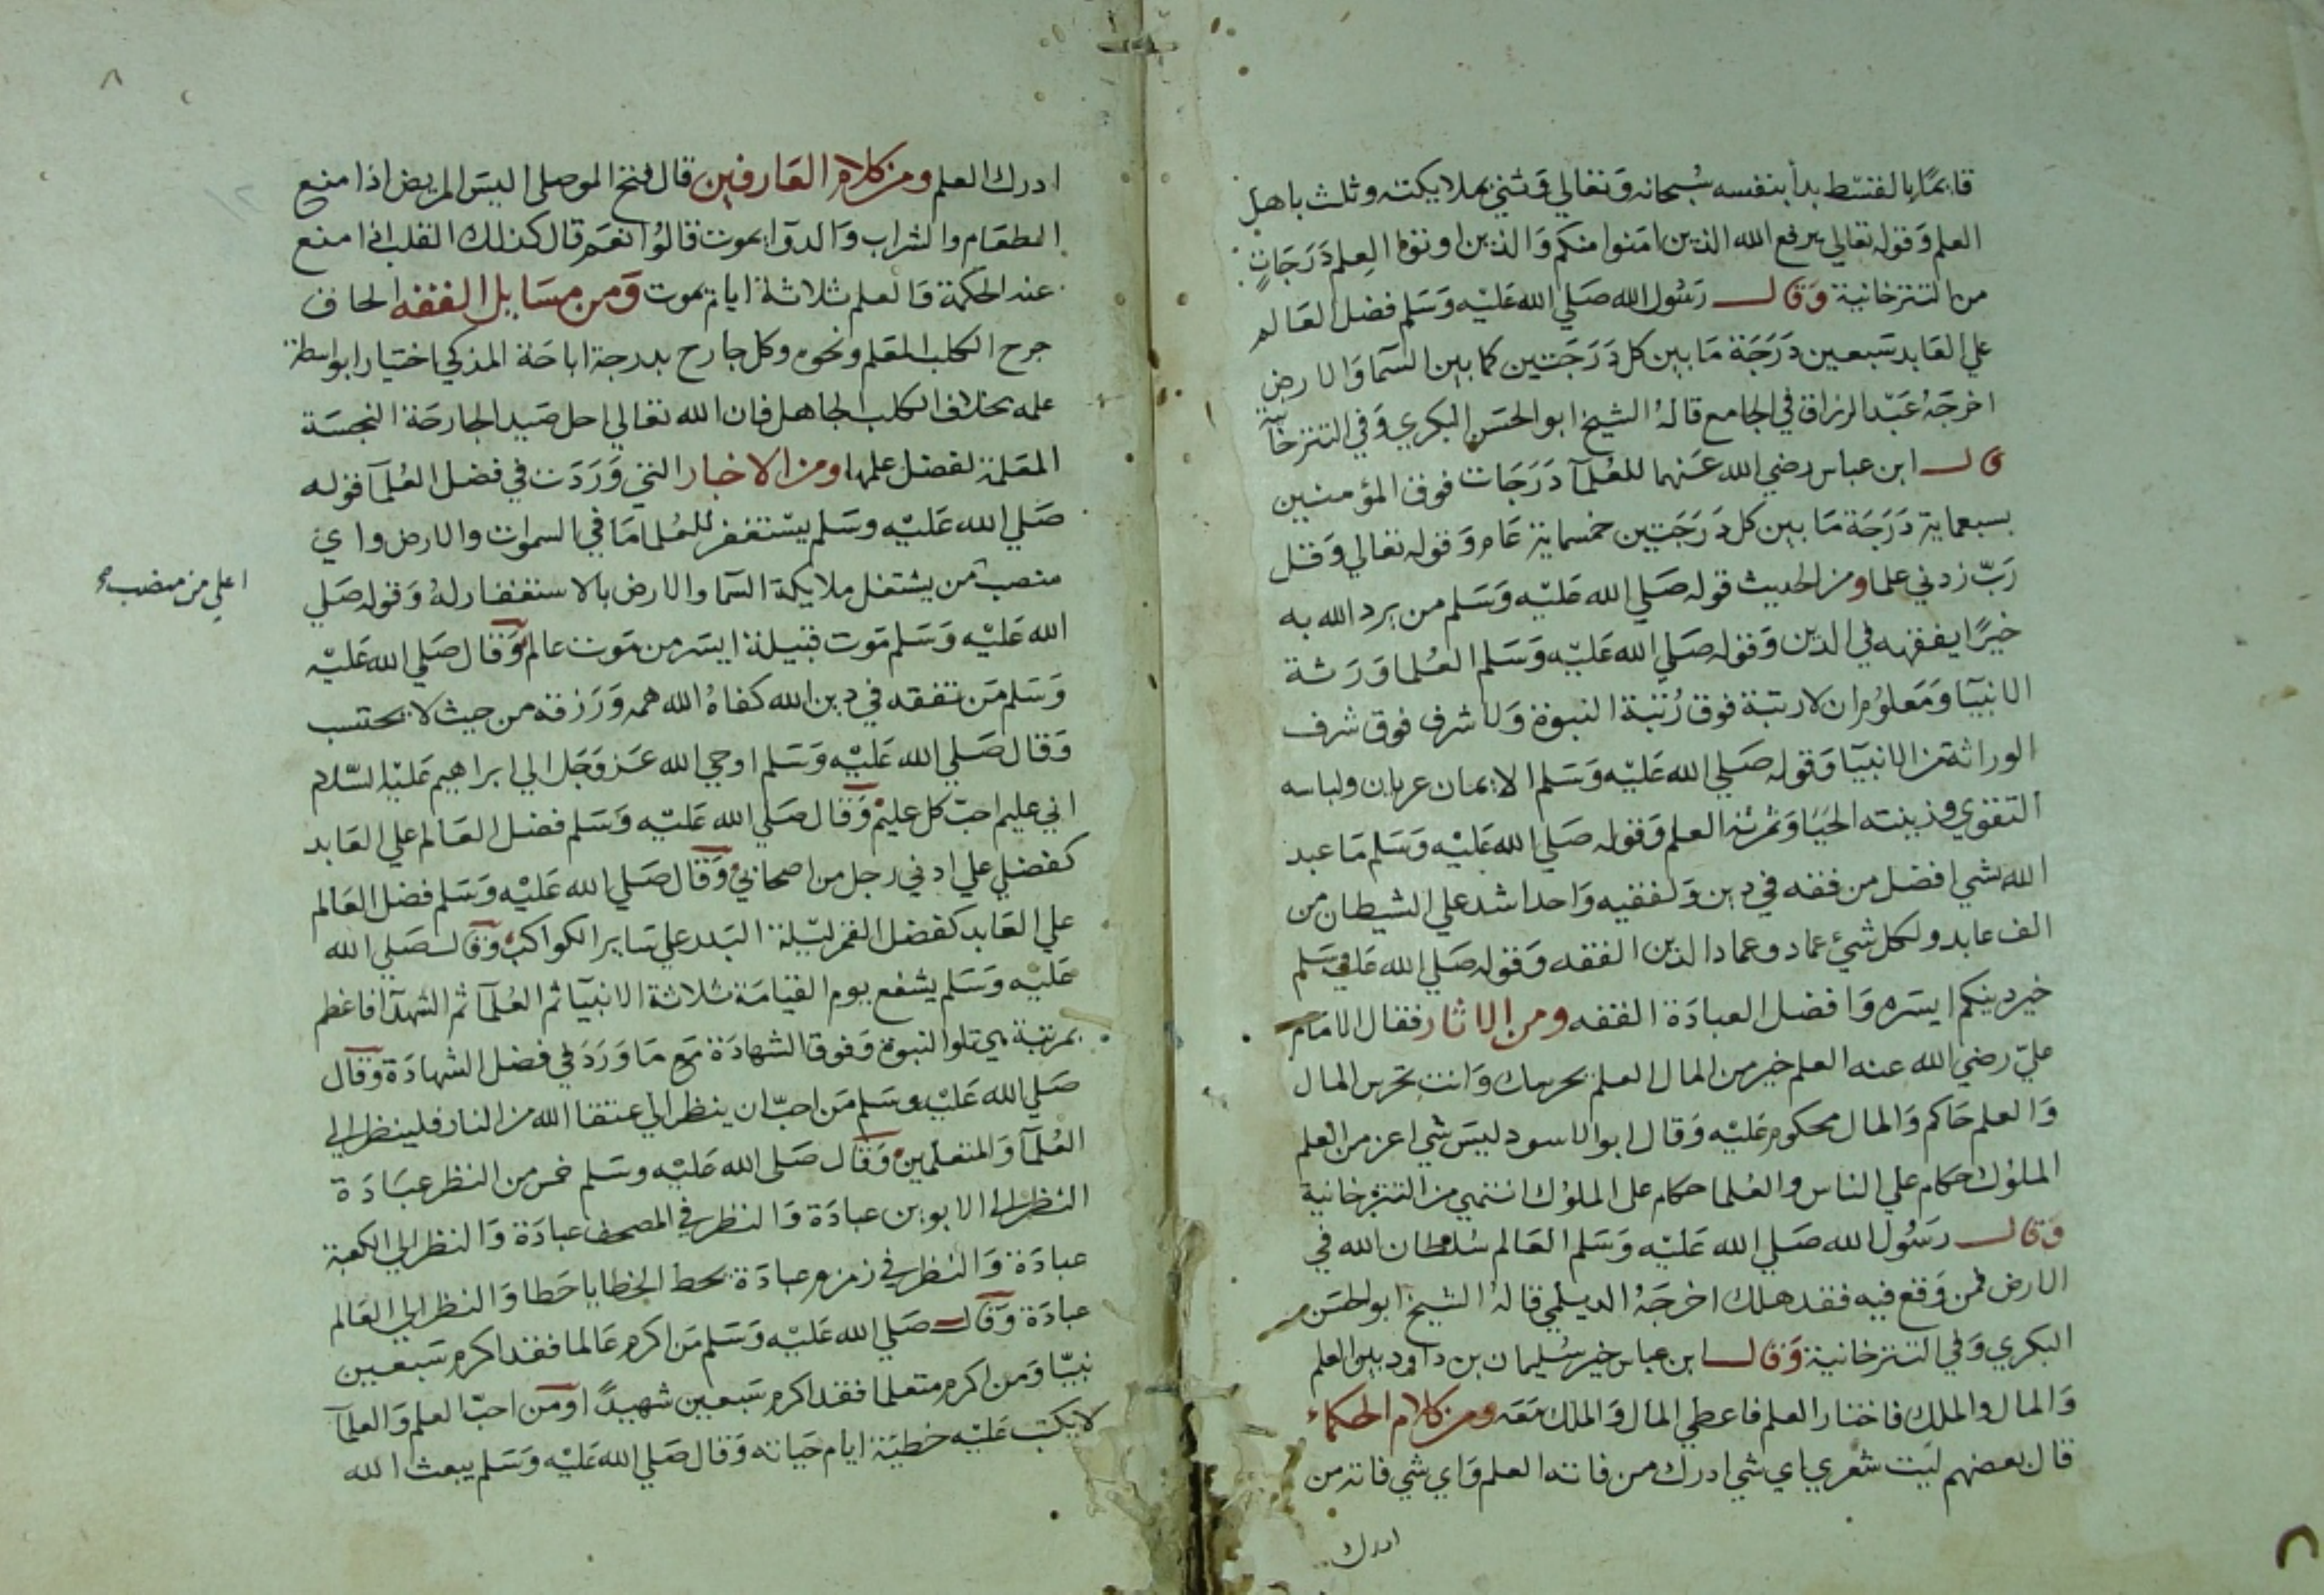 قايمًا بالقسط بدأ بنفسه سُبحانه وَتعالي وَثني بملايكته وثلث باهل
العلم وَقوله تعالي يرفع الله الذين امَنوا منكم وَالذين اوتوا العِلم دَرَجَاتٍ
من التترخانية وَقال رَسُول الله صَلي الله عَليْه وَسَلم فضل العَالم
علي العَابد سَبعين دَرَجَة مَا بين كل دَرَجَتين كما بين السَمآ وَالارض
اخرجَهُ عَبْد الرزاق في الجامع قالهُ الشيخ ابو الحسَن البكري وَفي التترخانية
قال ابن عباس رضي الله عَنهما للعُلمآ دَرَجَات فوق المؤمنين
بسبعماية دَرَجَة مَا بين كل دَرَجَتين خمسماية عَام وَقوله تعالي وَقل
رَبّ زدني علما ومن الحديث قوله صَلي الله عَليْه وَسَلم من يرد الله به
خيرًا يفقهه في الدين وَقوله صَلي الله عَليْه وَسَلم العُلما وَرَثة
الانبيآ وَمَعلوُم ان لا رتبة فوق رُتبة النبوة وَلا شرف فوق شرف
الوراثة من الانبيآ وَقوله صَلي الله عَليْه وَسَلم الايمان عريان ولباسه
التقوي وزينته الحيَا وَثمرته العلم وَقوله صَلي الله عَليْه وَسَلم مَا عبد
الله بشي افضل من فقه في دين وَلفقيه وَاحد اشد علي الشيطان من
الف عابد ولكل شيء عماد وعماد الدين الفقه وَقوله صَلي الله عَليه وسَلم
خير دينكم ايسَره وَافضل العبادَة الفقه ومن الاثار فقال الامَام
عليّ رضي الله عنه العلم خير من المال العلم يحرسك وَانت تحرس المال
وَالعلم حَاكم وَالمال محكوم عَليْه وَقال ابو الاسود ليسَ شي اعز من العلم
الملوُك حكام علي الناس والعُلما حكام علي الملوُك انتهي من التترخانية
وَقال رَسُول الله صَلي الله عَليْه وَسَلم العَالم سُلطان الله في
الارض فمن وَقع فيه فقد هلك اخرجَهُ الديلمي قالهُ الشيخ ابو الحسَن
البكري وَفي التترخانية وَقال ابن عباس خير سُليمان بن داود بين العلم
وَالمال والملك فاختار العلم فاعطي المال وَالملك مَعَه ومن كلام الحكماء
قال بعضهم ليَت شعري اي شي ادرك من فاته العلم وَاي شي فاته من
ادرك
ادرك العلم ومن كلام العَارفين قال فتح الموصلي اليسَ المريض اذا منع
الطعَام والشراب وَالدوآ يموت قالوُا نعَم قال كذلك القلب اذا منع
عنه الحكمة وَالعلم ثلاثة ايام يموت وَمن مسَايل الفقه الحاق
جرح الكلب المعَلم ونحوه وكل جارح بدرجة اباحَة المذكي اختيارا بواسطة
علمه بخلاف الكلب الجاهل فان الله تعالي احل صَيد الجارحَة النجسَة
المعَلمة لفضل علمها ومن الاخبار التي وَرَدَت في فضل العُلمآ قوله
صَلي الله عَليْه وسَلم يسْتغفر للعُلما مَا في السموات والارض واي
منصب من يشتغل ملايكة السَمآ والارض بالاستغفار لهُ وَقوله صَلي
اعلي من منصب
الله عَليْه وَسَلم مَوت قبيلة ايسَر من مَوت عالم وَقال صَلي الله عَليْه
وَسَلم مَن تفقه في دين الله كفاهُ الله همه وَرَزقه من حيث لا يحتسب
وَقال صَلي الله عَليْه وَسَلم اوحي الله عَز وَجَل الي ابراهيم عَليْه السّلام
اني عليم احبّ كل عليم وَقال صَلي الله عَليْه وَسَلم فضل العَالم علي العَابد
كفضلي علي ادني رجل من اصحابي وَقال صَلي الله عَليْه وَسَلم فضل العَالم
علي العَابد كفضل القمر ليْلة البَدر علي سَاير الكواكب وَقال صَلي الله
عَليْه وَسَلم يشفع يوم القيامَة ثلاثة الانبيآ ثم العُلمآ ثم الشهدآ فاعظم
بمرتبة هي تلو النبوة وَفوق الشهادَة مَع مَا وَرَدَ في فضل الشهادَة وَقال
صَلي الله عَليْه وسَلم مَن احبّ ان ينظر الي عتقا الله من النار فلينظر الي
العُلمآ وَالمتعلمين وَقال صَلي الله عَليْه وسَلم خمس من النظر عبَادَة
النظر الي الابوين عبادَة وَالنظر في المصحف عبادَة وَالنظر الي الكعبة
عبادَة وَالنظر في زمزم عبادَة يحط الخطايا حَطا وَالنظر الي العَالم
عبادَة وَقال صَلي الله عَليْه وَسَلم مَن اكرم عَالما فقد اكرم سَبعين
نبيّا وَمن اكرم متعلما فقد اكرم سَبعين شهيدًا وَمن احبّ العلم وَالعلمآ
لا يكتب عَليْه خطيَة ايام حَياته وَقال صَلي الله عَليْه وَسَلم يبعث الله